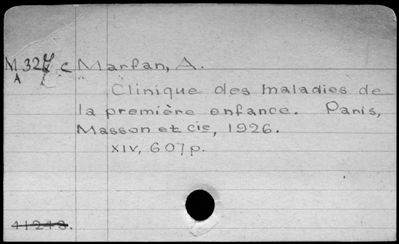 M 327 c Marfan, A.
A
Clinique des maladies de
la première enfance. Paris,
Masson et cie, 1926.
XIV, 607p.
41248.